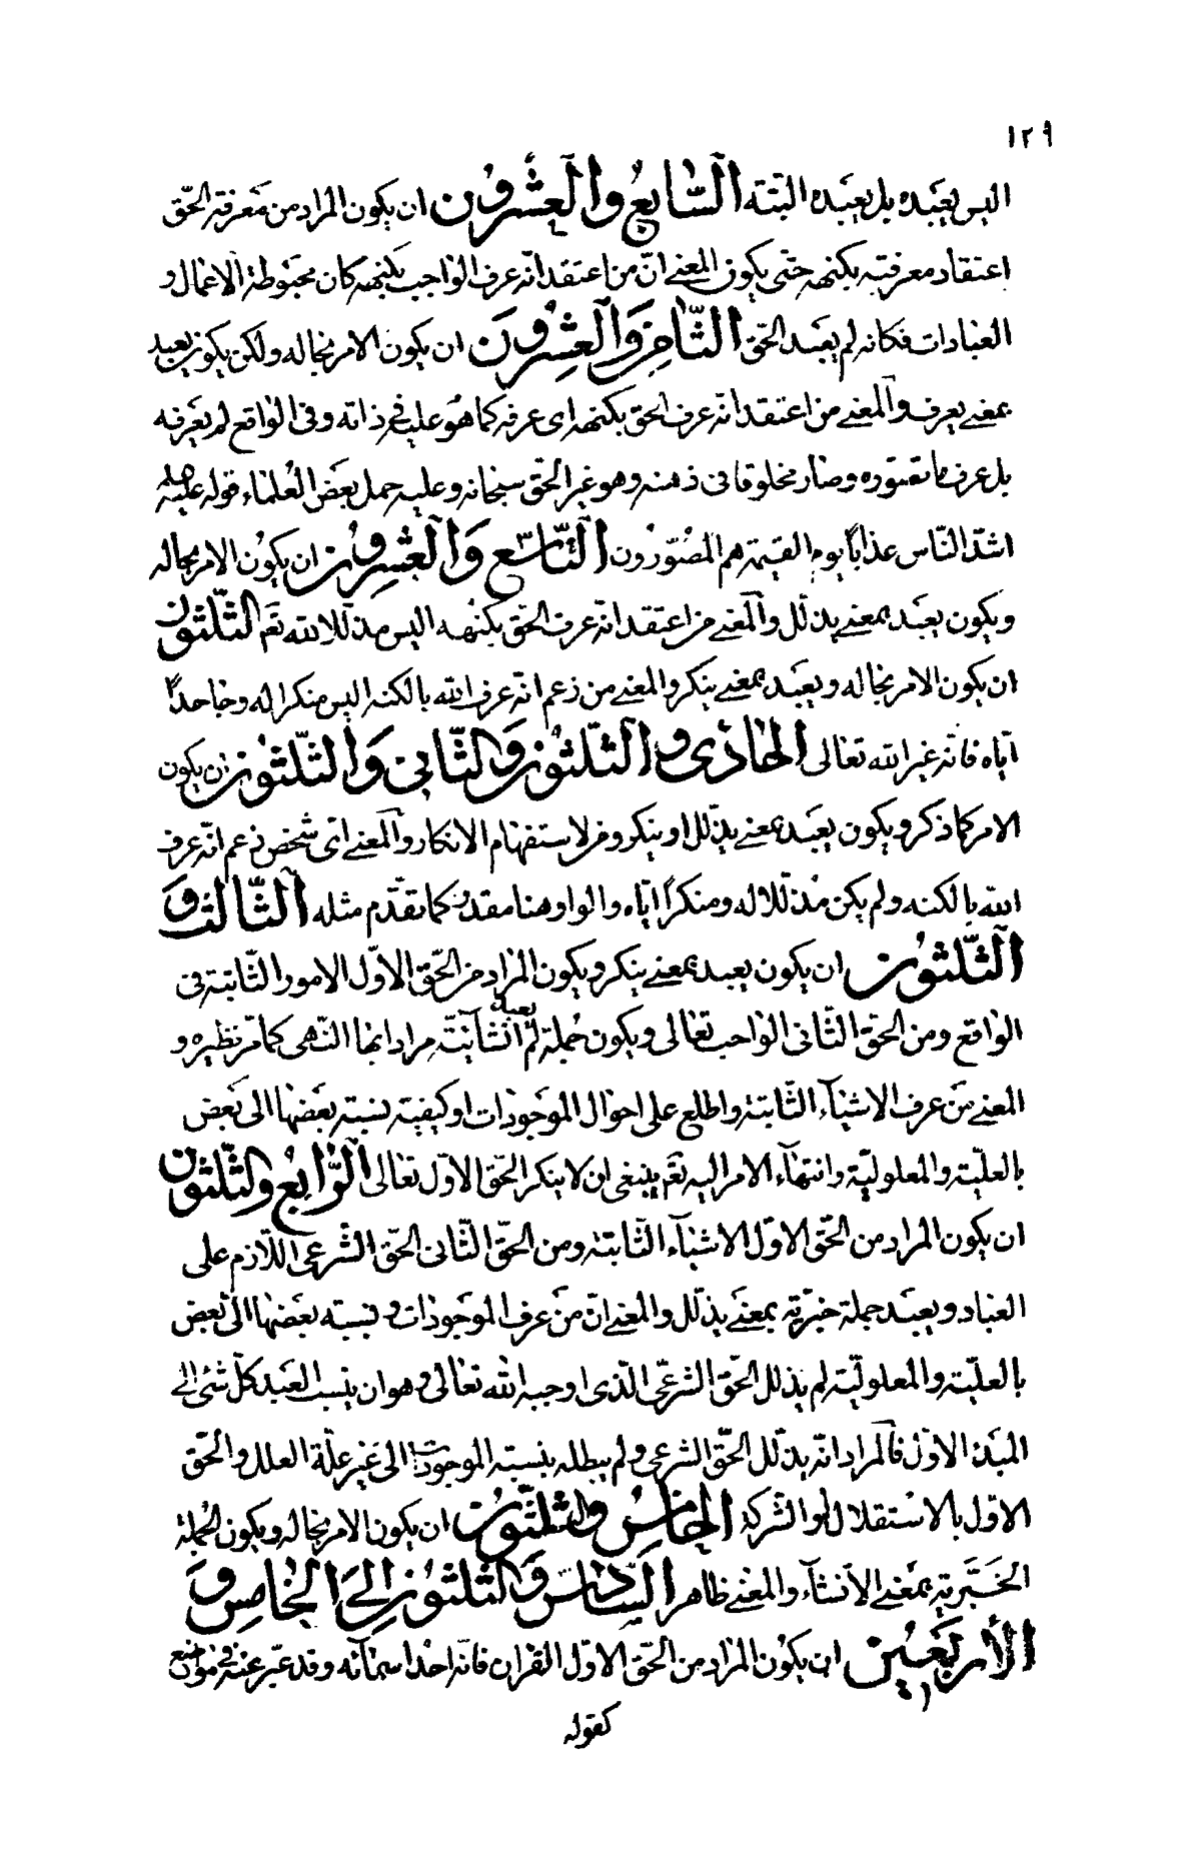 ١٢٩
اليس يعبده بل يعبده البتته السّابع والعشرون ان يكون المراد من معرفة الحّق
اعتقاد معرفته بكنهه حتى يكون المعنے انّ من اعتقد انّه عرف الواجب بكنهه كان محبوطة الاعمال و
العبادات فكانه لم يعبد الحّق الثّامن والعشرون ان يكون الامر بحاله ولكن يكون يعبد
بمعنے يعرف والمعنے من اعتقد انّه عرف الحق بكنهه اى عرفه كما هو عليه فے ذاته وفى الواقع لم يعرفه
بل عرف ما تصوّره وصار مخلوقا فى ذهنه وهو غير الحّق سبحانه وعليه حمل بعض العلماء قوله عليه
اشدّ النّاس عذابًا يوم القيمة هم المصّورون التّاسع والعشرون ان يكون الامر بحاله
ويكون يعبد بمعنے يذلل والمعنے من اعتقد انّه عرف الحّق بكنهه اليس مذلّلا لله نعم الثّلثون
ان يكون الامر بحاله ويعبد بمعنے ينكر والمعنے من زعم انّه عرف الله بالكنه اليس منكرا له وجاحدًا
ايّاه فانّه غير الله تعالى الحادى والثّلثون والثّانى والثّلثون ان يكون
الامر كما ذكر ويكون يعبد بمعنے يذلّل او ينكر ومن لاستفهام الانكار والمعنے اىّ شخص زعم انّه عرف
الله بالكنه ولم يكن مذلّلا له ومنكرًا ايّاه والواو هنا مقدر كما تقدّم مثله الثّالث و
الثّلثون ان يكون يعبد بمعنے ينكر ويكون المراد من الحّق الاوّل الامور الثّابتة فى
الواقع ومن الحّق الثّانى الواجب تعالى ويكون جملة لم يعبد انشآئيّة مرادا بها النّهى كما مرّ نظيره و
المعنے من عرف الاشيآء الثّابتة واطلع على احوال الموجودات او كيفية نسبة بعضها الى بعض
بالعليّة والمعلوليّة وانتهآء الامر اليه نعم ينبغى ان لا ينكر الحّق الاوّل تعالى الرّابع والثّلثون
ان يكون المراد من الحّق الاوّل الاشيآء الثّابتة ومن الحقّ الثّانى الحّق الشّرعى اللّازم على
العباد ويعبد جملة خبريّه بمعنے يذلّل والمعنے انّ من عرف الموجودات ونسبته بعضها الى بعض
بالعليّة والمعلوليّة لم يذلل الحّق الشرعّى الّذى اوجبه الله تعالى وهو ان ينسب العبد كلّ شئ الے
المبدء الاوّل فالمراد انّه يذلّل الحّق الشرعى ولم يبطله بنسبته الموجودات الى غير علّة العلل والحّق
الاوّل بالاستقلال او الشركة الخامس والثلثون ان يكون الامر بحاله ويكون الجملة
الخبريّه بمعنے الانشآء والمعنے ظاهر السّادس والثلثون الى الخامس و
الأربعين ان يكون المراد من الحّق الاوّل القران فانّه احد اسمآئه وقد عبّر عنه فے مواضع
كقوله